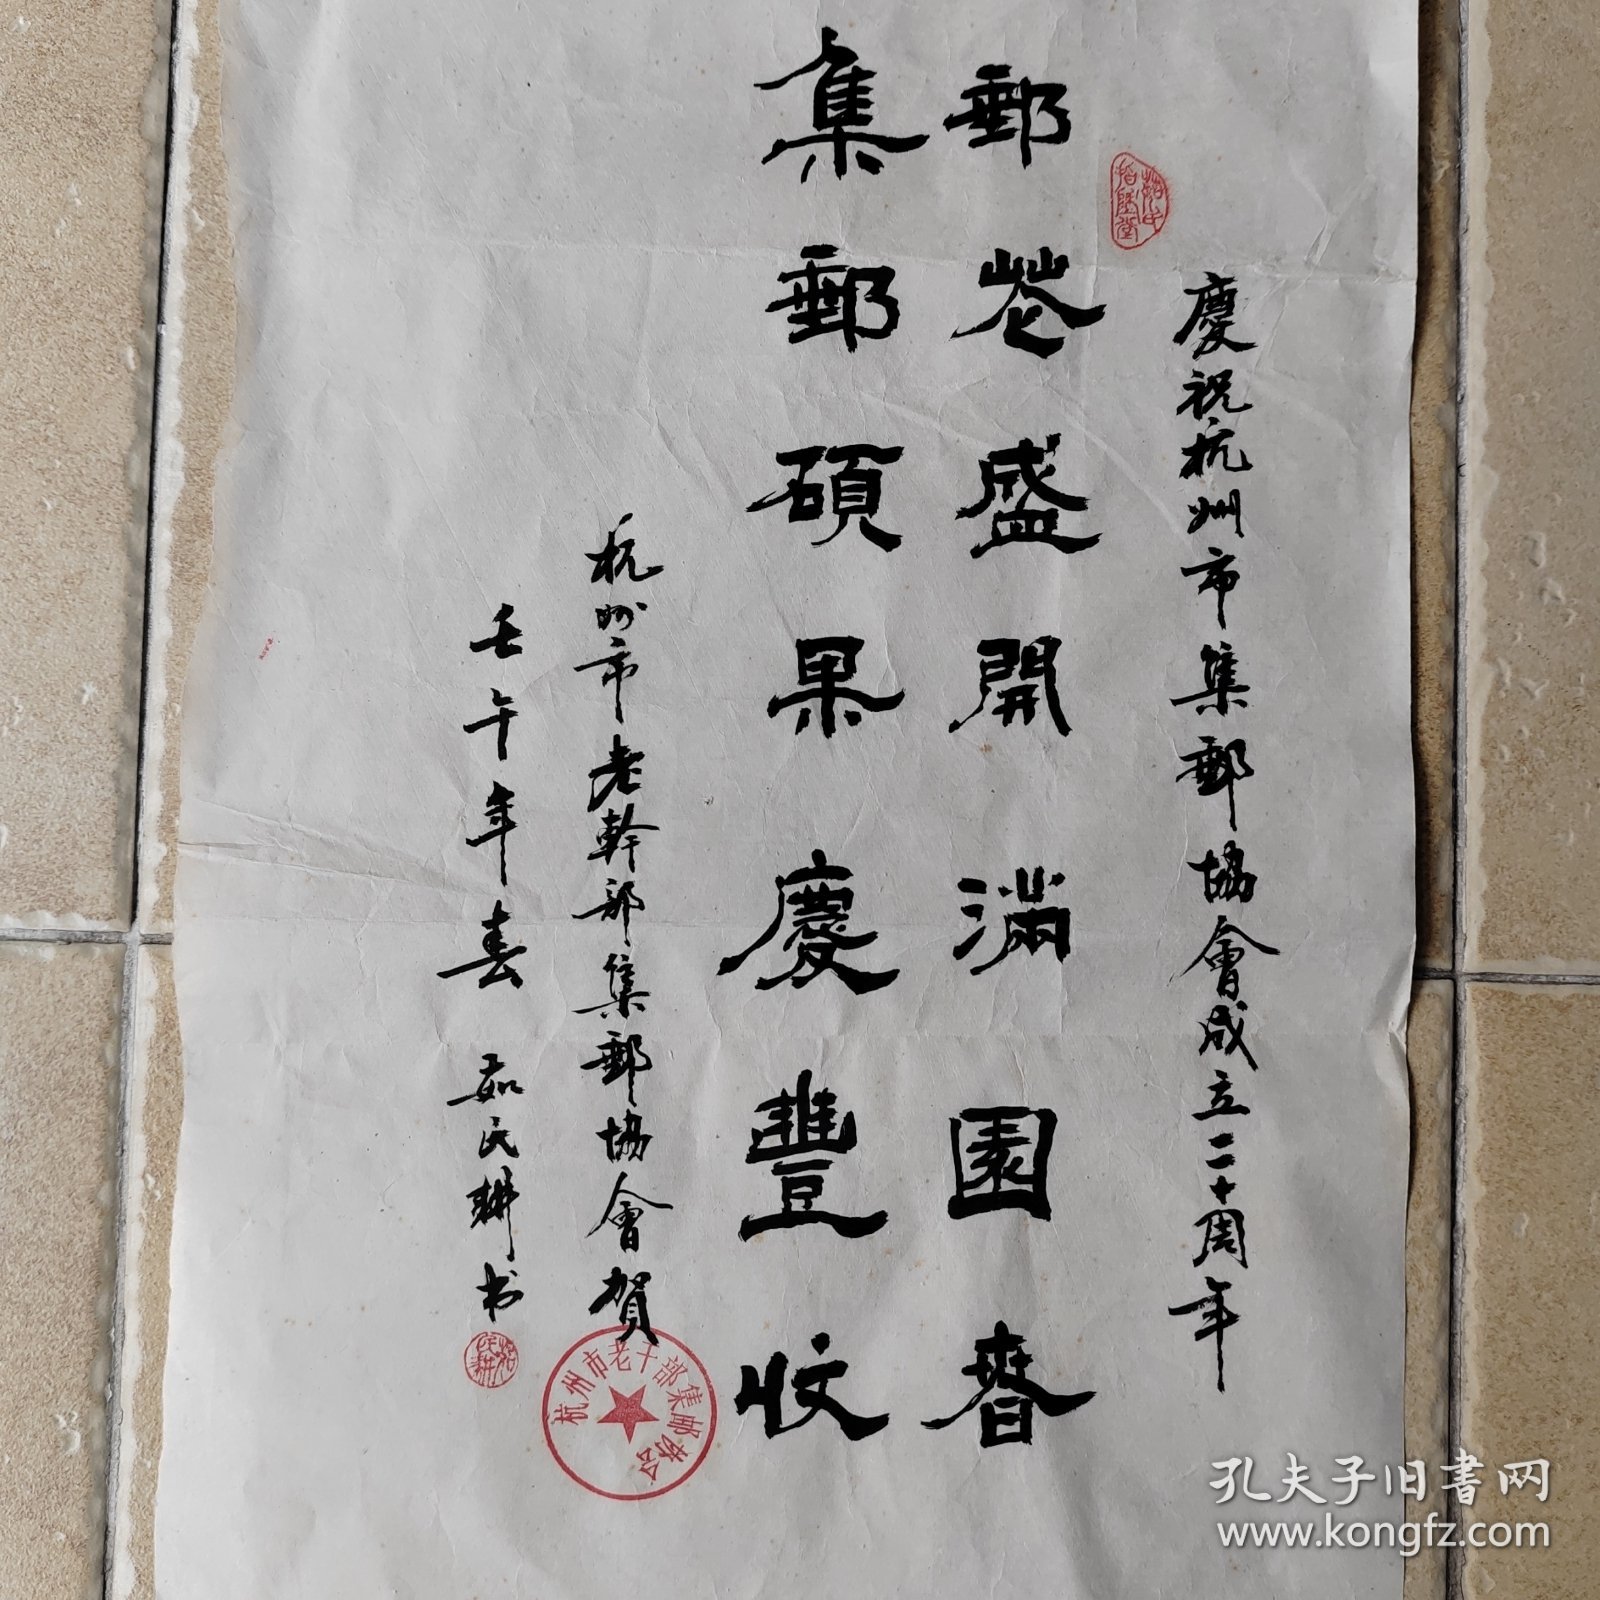 慶祝杭州市集郵協會成立二十周年
郵苑盛開滿園春
集郵碩果慶豐收
杭州市老幹部集郵協會賀
壬午年春 茹民耕书
杭州市老干部集邮协会
茹民耕
孔夫子旧書网
www.kongfz.com